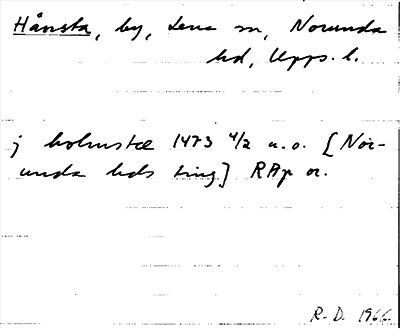 Hånsta, by, Lena sn, Norunda
hd, Upps. l.
j holmstæ 1473 4/2 u.o. [Nor-
unda hds ting] RAp or.
R-D. 1966.